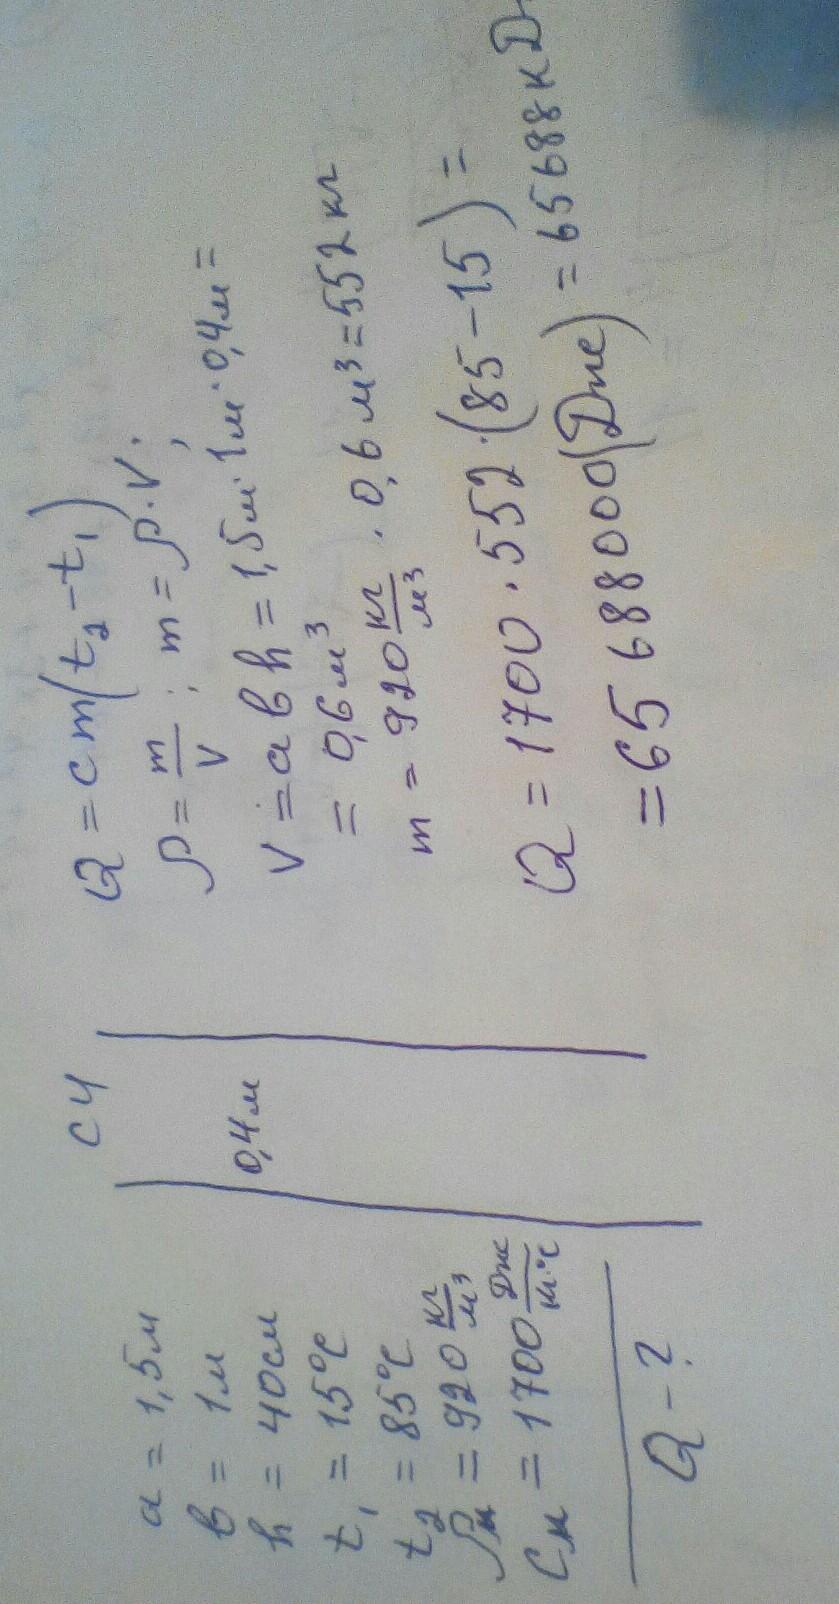 a = 1,5м
в = 1м
h = 40см
t₁ = 15°С
t₂ = 85°С
ρм = 920 кг/м³
См = 1700 Дж/кг·°С
Q - ?
СИ
0,4м
Q = cm(t₂-t₁)
ρ = m/V ; m = ρ·V;
V = aвh = 1,5м·1м·0,4м =
= 0,6м³
m = 920 кг/м³ · 0,6 м³ = 552 кг
Q = 1700 · 552·(85-15) =
= 65 688000(Дж) = 65688кД